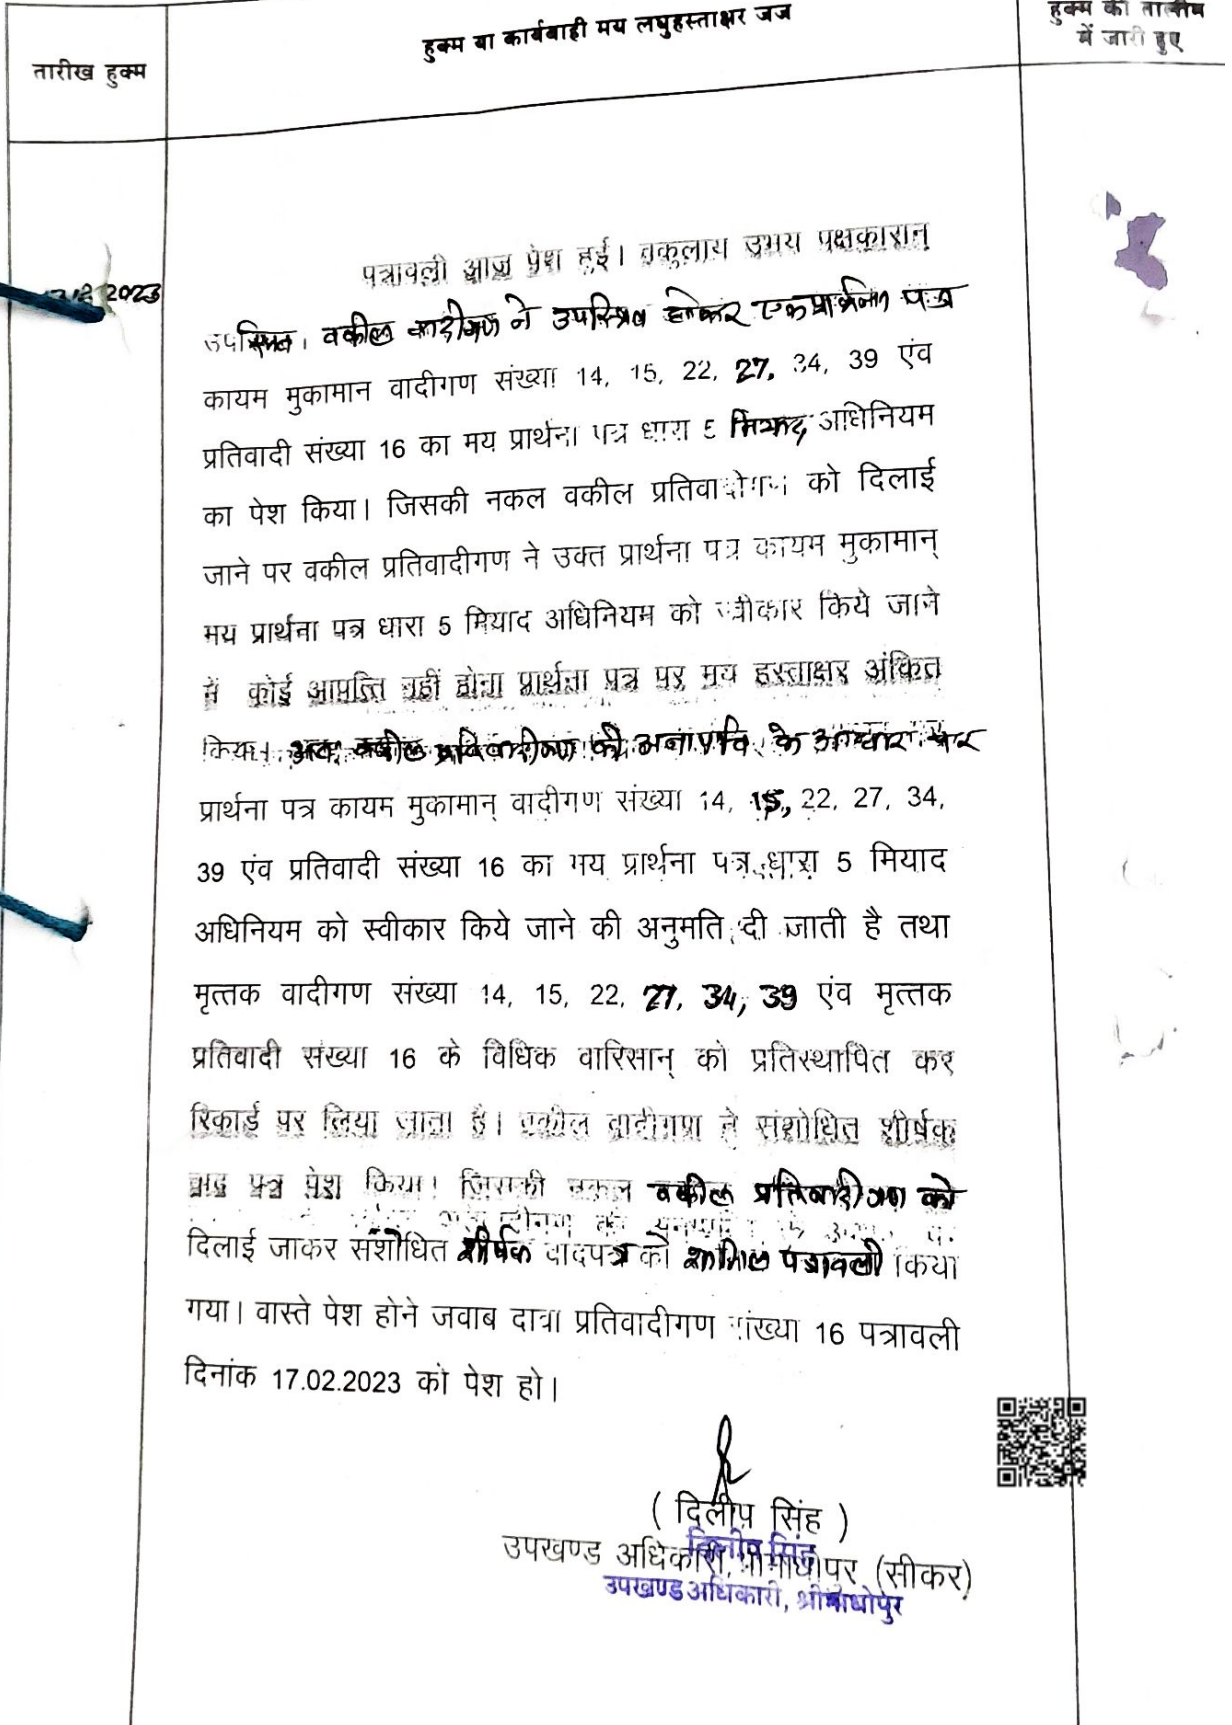 तारीख हुक्म
हुक्म या कार्यवाही मय लघुहस्ताक्षर जज
हुक्म की तालीम
में जारी हुए
2023
पत्रावली आज पेश हुई। वकुलाय उभय पक्षकारान्
उपस्थित। वकील वादीगण ने उपस्थित होकर एक प्रार्थना पत्र
कायम मुकामान वादीगण संख्या 14, 15, 22, 27, 34, 39 एंव
प्रतिवादी संख्या 16 का मय प्रार्थना पत्र धारा 5 मियाद अधिनियम
का पेश किया। जिसकी नकल वकील प्रतिवादीगण को दिलाई
जाने पर वकील प्रतिवादीगण ने उक्त प्रार्थना पत्र कायम मुकामान्
मय प्रार्थना पत्र धारा 5 मियाद अधिनियम को स्वीकार किये जाने
में कोई आपत्ति नहीं होना प्रार्थना पत्र पर मय हस्ताक्षर अंकित
किया। अतः वकील प्रतिवादीगण की अनापत्ति के आधार पर
प्रार्थना पत्र कायम मुकामान् वादीगण संख्या 14, 15, 22, 27, 34,
39 एंव प्रतिवादी संख्या 16 का मय प्रार्थना पत्र धारा 5 मियाद
अधिनियम को स्वीकार किये जाने की अनुमति दी जाती है तथा
मृत्तक वादीगण संख्या 14, 15, 22, 27, 34, 39 एंव मृत्तक
प्रतिवादी संख्या 16 के विधिक वारिसान् को प्रतिस्थापित कर
रिकार्ड पर लिया जाता है। वकील वादीगण ने संशोधित शीर्षक
वाद पत्र पेश किया। जिसकी नकल वकील प्रतिवादीगण को
दिलाई जाकर संशोधित शीर्षक वादपत्र को शामिल पत्रावली किया
गया। वास्ते पेश होने जवाब दावा प्रतिवादीगण संख्या 16 पत्रावली
दिनांक 17.02.2023 को पेश हो।
( दिलीप सिंह )
दिलीप सिंह
उपखण्ड अधिकारी, श्रीमाधोपुर (सीकर)
उपखण्ड अधिकारी, श्रीमाधोपुर